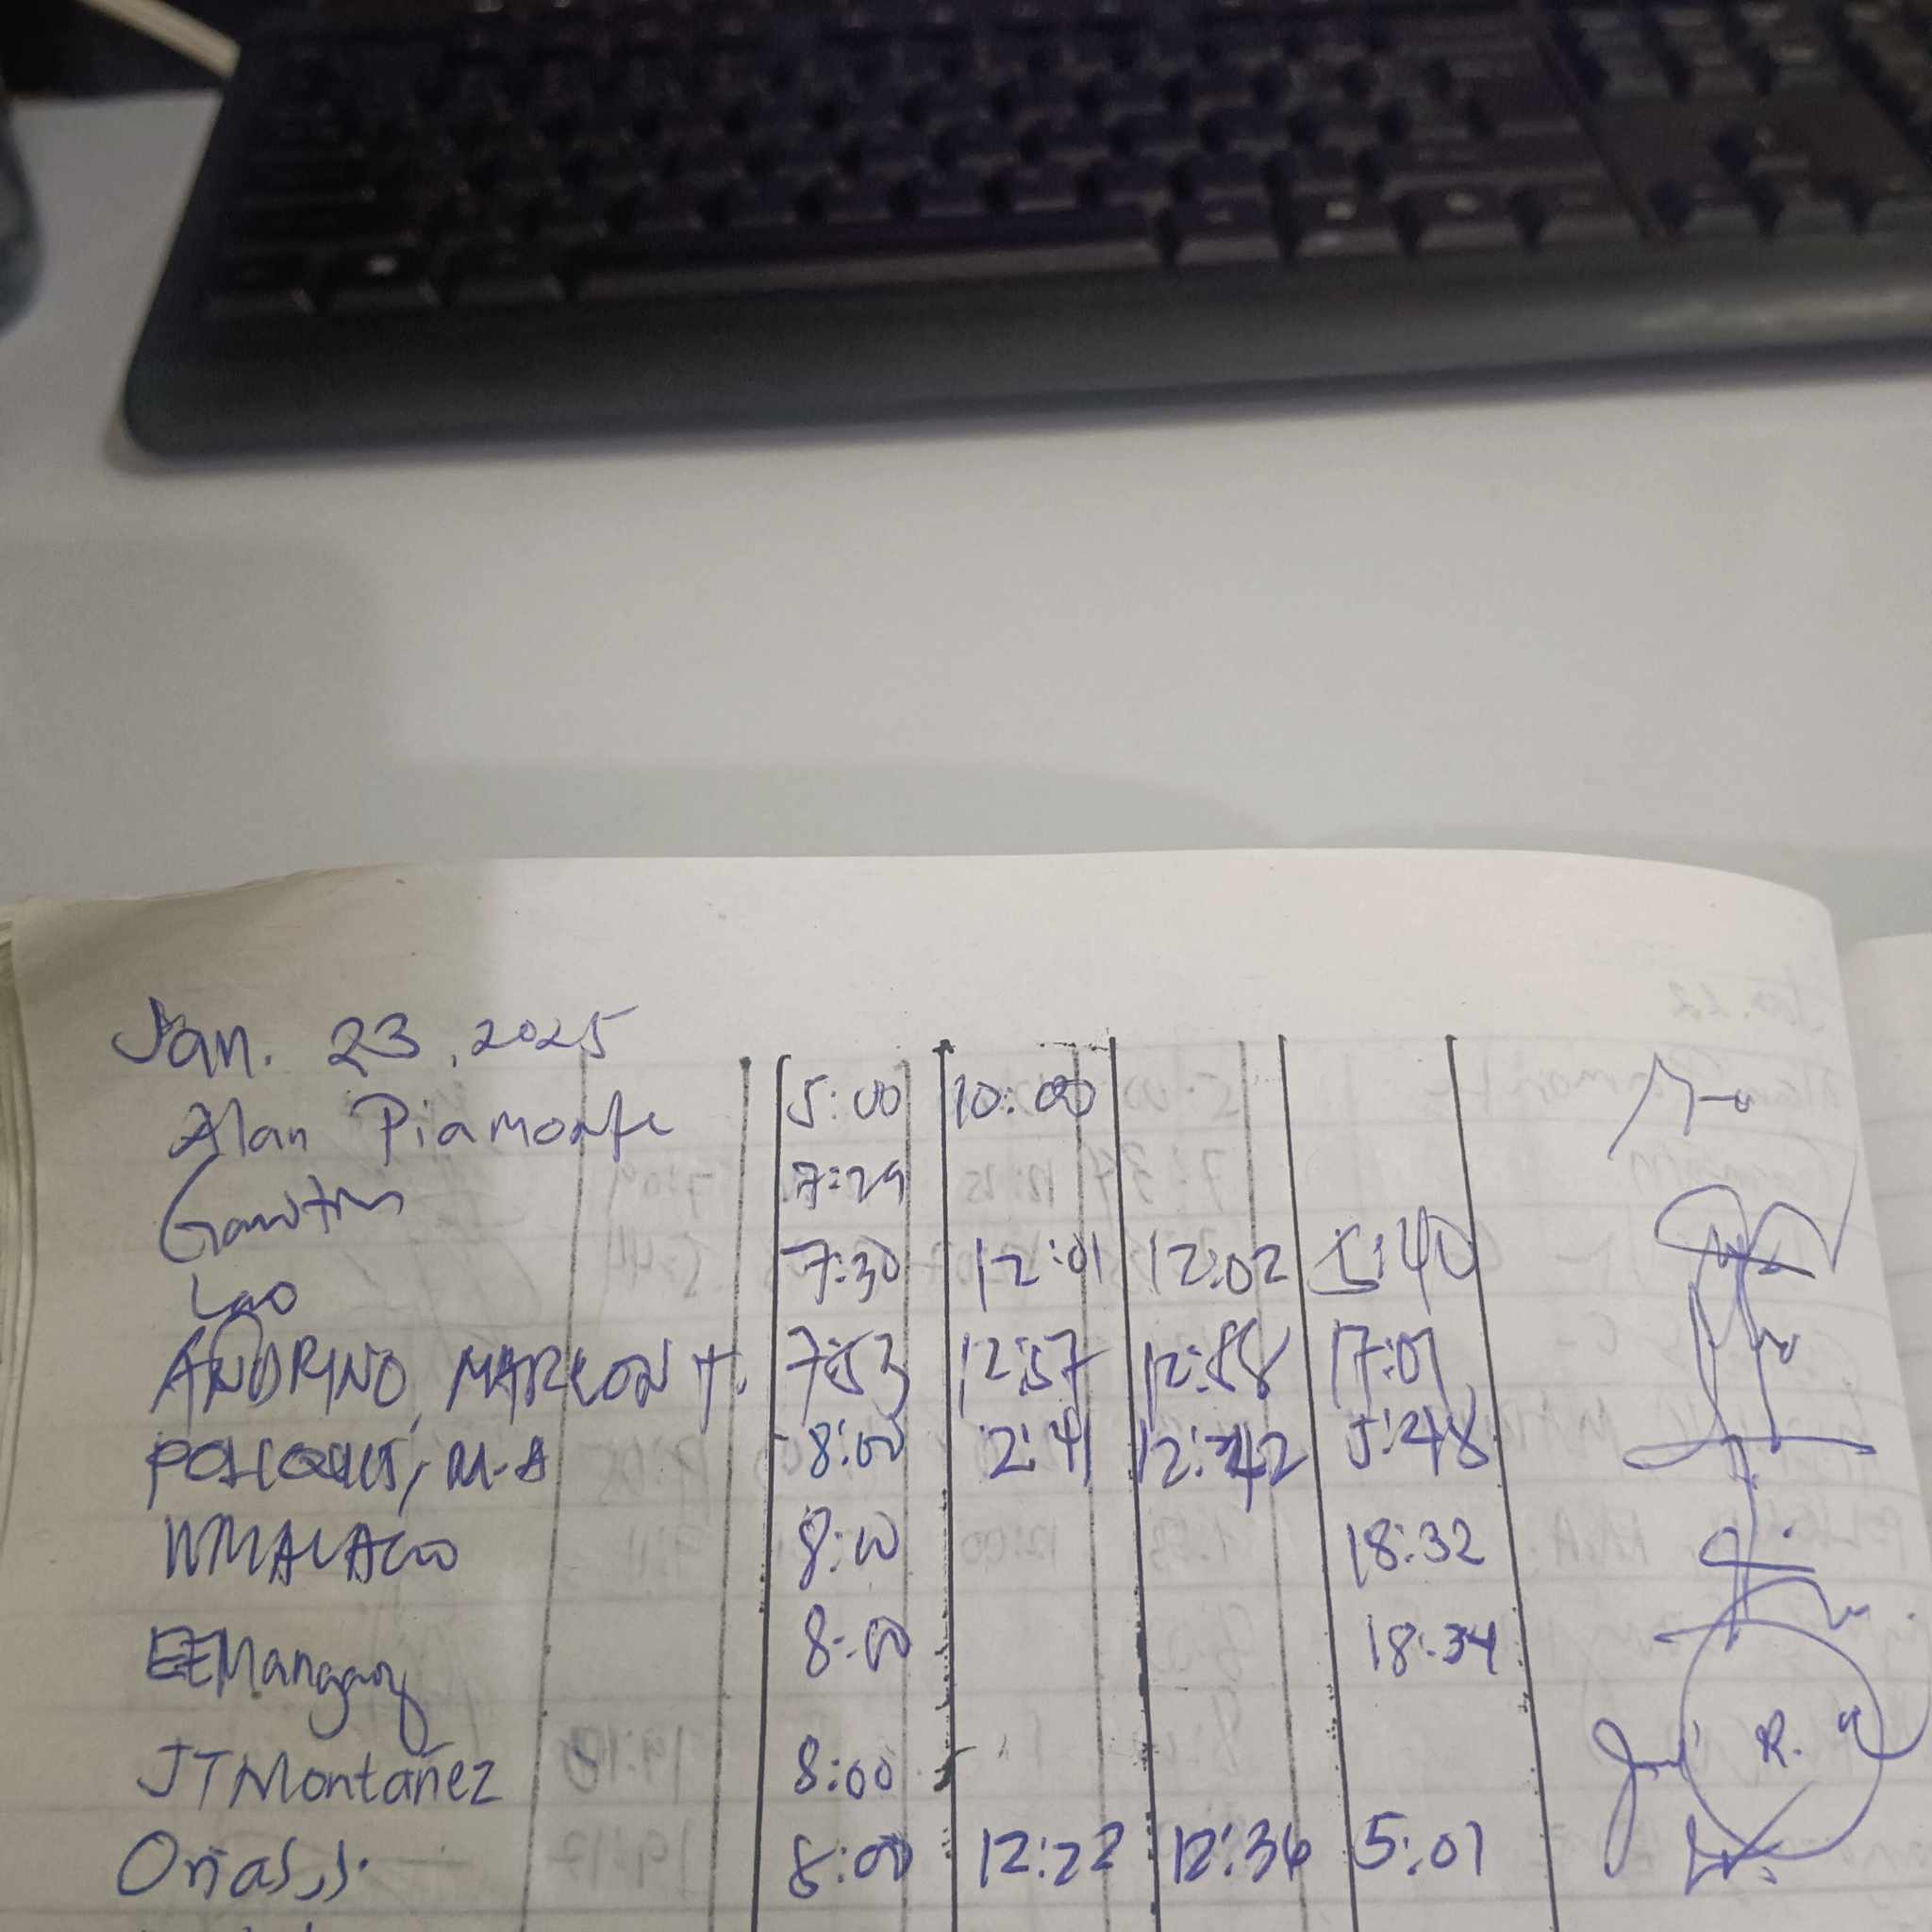 Jan. 23, 2025
Alan Piamonte 5:00 10:00
7:29
Lao 7:30 12:01 12:02 5:40
ANDRINO, MARLON T. 7:53 12:57 12:58 17:01
8:00 12:41 12:42 5:48
8:00 18:32
EEMangay 8:00 18:34
JTMontañez 8:00
Orias, J. 8:00 12:22 12:36 5:01
R.